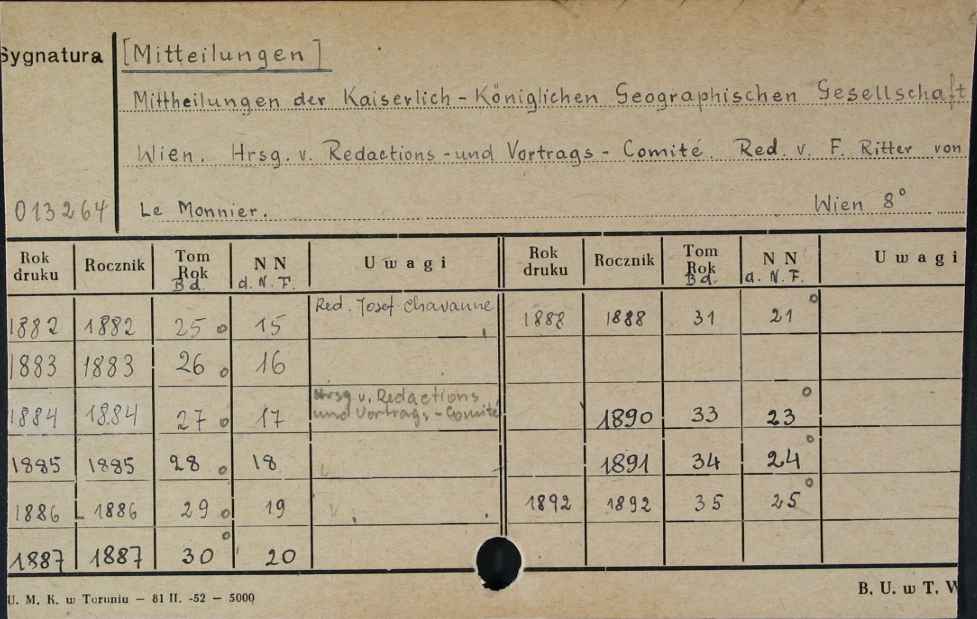 Sygnatura [Mitteilungen]
Mittheilungen der Kaiserlich-Königlichen Geographischen Gesellschaft
Wien. Hrsg. v. Redactions-und Vortrags-Comité. Red. v. F. Ritter von
013264 Le Monnier. Wien 8°
Rok druku Rocznik Tom Rok Bd. NN d. N. F. Uwagi Rok druku Rocznik Tom Rok Bd. NN d. N. F. Uwagi
1882 1882 25 15 Red. Josef Chavanne 1888 1888 31 21
1883 1883 26 16
1884 1884 27 17 Hrsg v. Redactions und Vortrags-Comité 1890 33 23
1885 1885 28 18 1891 34 24
1886 1886 29 19 1892 1892 35 25
1887 1887 30 20
U. M. K. w Toruniu — 81 II. -52 — 5000 B. U. w T. W